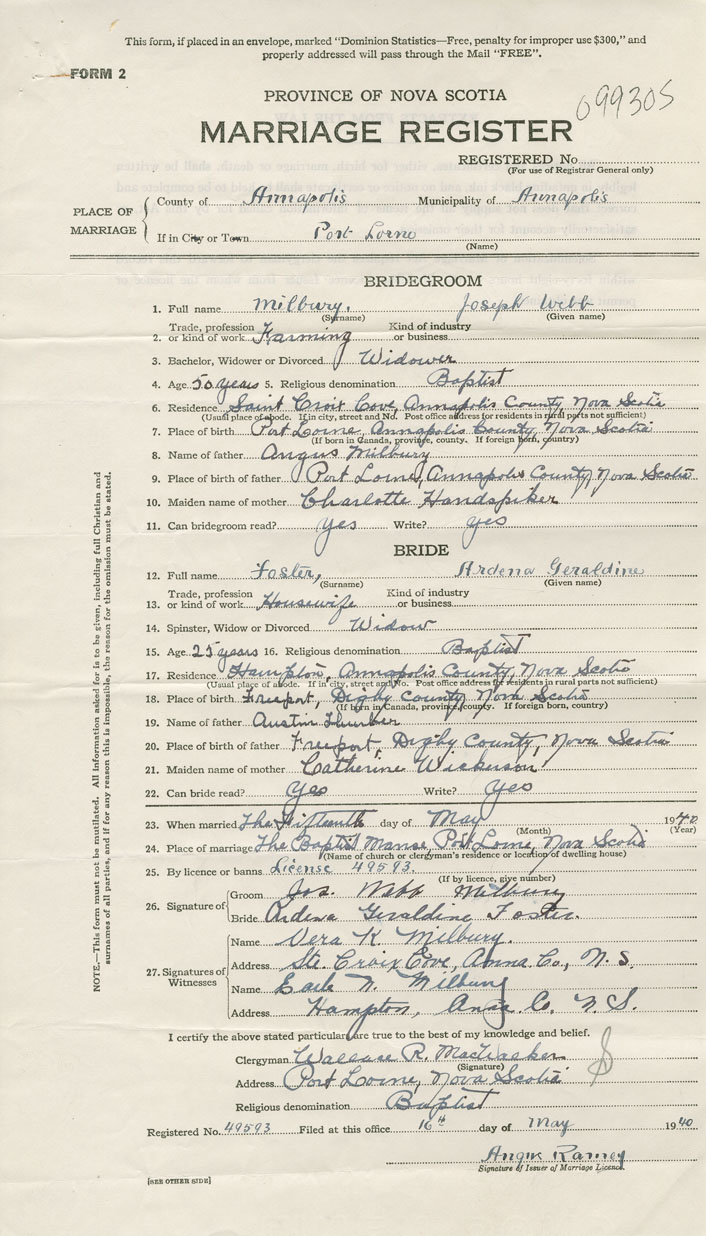 This form, if placed in an envelope, marked "Dominion Statistics—Free, penalty for improper use $300," and
properly addressed will pass through the Mail "FREE".
FORM 2
PROVINCE OF NOVA SCOTIA
099305
MARRIAGE REGISTER
REGISTERED No.
(For use of Registrar General only)
PLACE OF MARRIAGE
County of Annapolis Municipality of Annapolis
If in City or Town Port Lorne
(Name)
BRIDEGROOM
1. Full name Milbury, Joseph Webb
(Surname) (Given name)
2. Trade, profession or kind of work Farming Kind of industry or business
3. Bachelor, Widower or Divorced Widower
4. Age 50 years 5. Religious denomination Baptist
6. Residence Saint Croix Cove, Annapolis County, Nova Scotia
(Usual place of abode. If in city, street and No. Post office address for residents in rural parts not sufficient)
7. Place of birth Port Lorne, Annapolis County, Nova Scotia
(If born in Canada, province, county. If foreign born, country)
8. Name of father Angus Milbury
9. Place of birth of father Port Lorne, Annapolis County, Nova Scotia
10. Maiden name of mother Charlotte Handspiker
11. Can bridegroom read? yes Write? yes
BRIDE
12. Full name Foster, Ardena Geraldine
(Surname) (Given name)
13. Trade, profession or kind of work Housewife Kind of industry or business
14. Spinster, Widow or Divorced Widow
15. Age 25 years 16. Religious denomination Baptist
17. Residence Hampton, Annapolis County, Nova Scotia
(Usual place of abode. If in city, street and No. Post office address for residents in rural parts not sufficient)
18. Place of birth Freeport, Digby County, Nova Scotia
(If born in Canada, province, county. If foreign born, country)
19. Name of father Austin Thurber
20. Place of birth of father Freeport, Digby County, Nova Scotia
21. Maiden name of mother Catherine
22. Can bride read? Yes Write? Yes
23. When married The Fifteenth day of May 1940
(Month) (Year)
24. Place of marriage The Baptist Manse, Port Lorne, Nova Scotia
(Name of church or clergyman's residence or location of dwelling house)
25. By licence or banns License 49593.
(If by licence, give number)
26. Signature of
Groom Jos. Webb Milbury
Bride Ardena Geraldine Foster.
27. Signatures of Witnesses
Name Vera K. Milbury.
Address Ste. Croix Cove, Anna Co., N. S.
Name Earle N. Milbury
Address Hampton, Anna. Co. N. S.
I certify the above stated particulars are true to the best of my knowledge and belief.
Clergyman Wallace R.
(Signature)
Address Port Lorne, Nova Scotia
Religious denomination Baptist
Registered No. 49593 Filed at this office 16th day of May 1940
Angus Ramey
Signature of Issuer of Marriage Licence
[SEE OTHER SIDE]
NOTE.—This form must not be mutilated. All information asked for is to be given, including full Christian and
surnames of all parties, and if for any reason this is impossible, the reason for the omission must be stated.